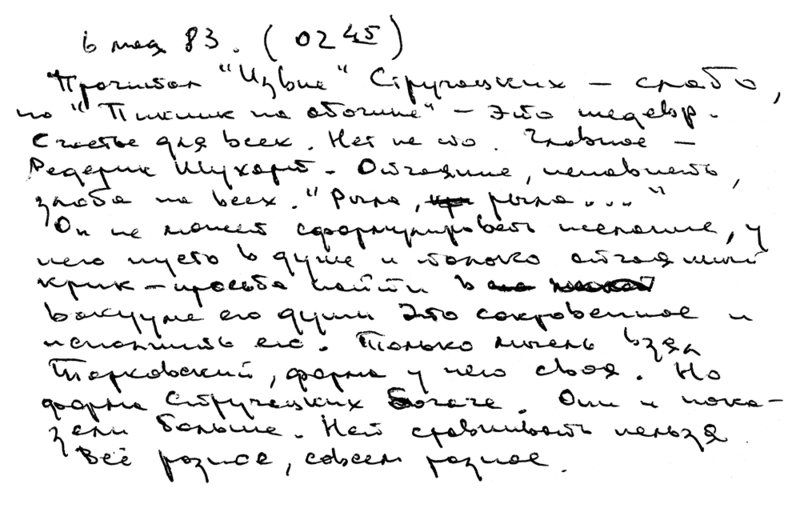 6 мая 83. (02 45)
Прочитал "Извне" Стругацких — слабо,
но "Пикник на обочине" — это шедевр.
Счастье для всех. Нет не то. Главное —
Редерик Шухарт. Отчаяние, ненависть,
злоба на всех. "Рыла, рыла...."
Он не может сформулировать желание, у
него пусто в душе и только отчаянный
крик — просьба найти в
вакууме его души это сокровенное и
исполнить его. Только мысль взял
Тарковский, форма у него своя. Но
форма Стругацких богаче. Они и пока-
зали больше. Нет сравнивать нельзя
Всё разное, совсем разное.